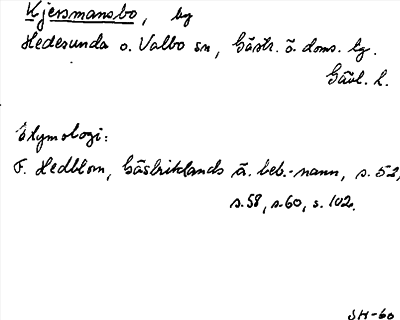 Kjersmansbo, by
Hedesunda o. Valbo sn, Gästr. ö. doms. hg.
Gävl. l.
Etymologi:
F. Hedblom, Gästriklands ä. beb.-namn, s. 52,
s. 58, s. 60, s. 102.
SH-60